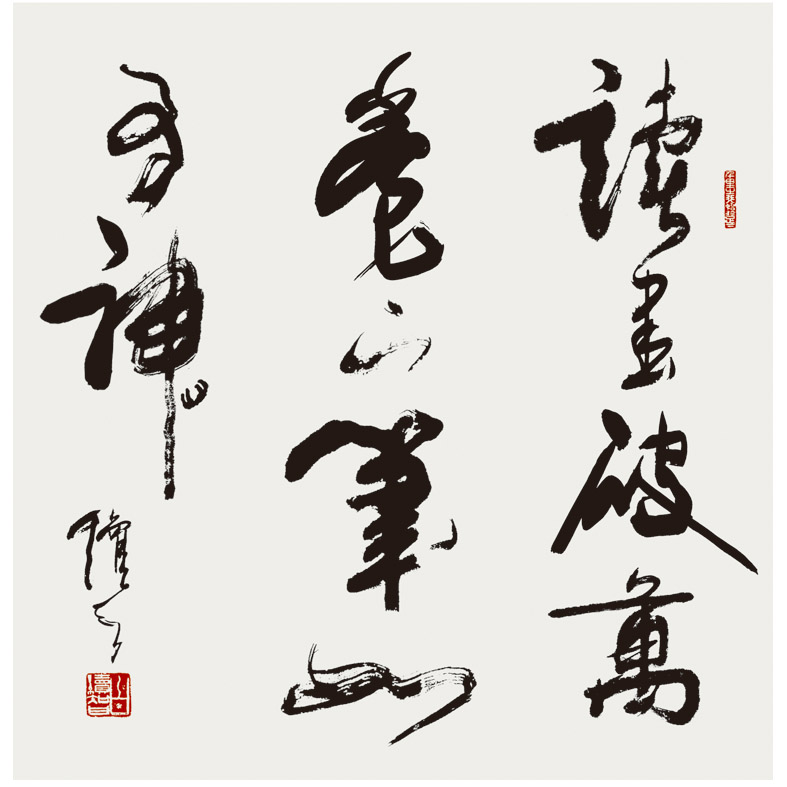 讀書破萬
卷下筆如
有神